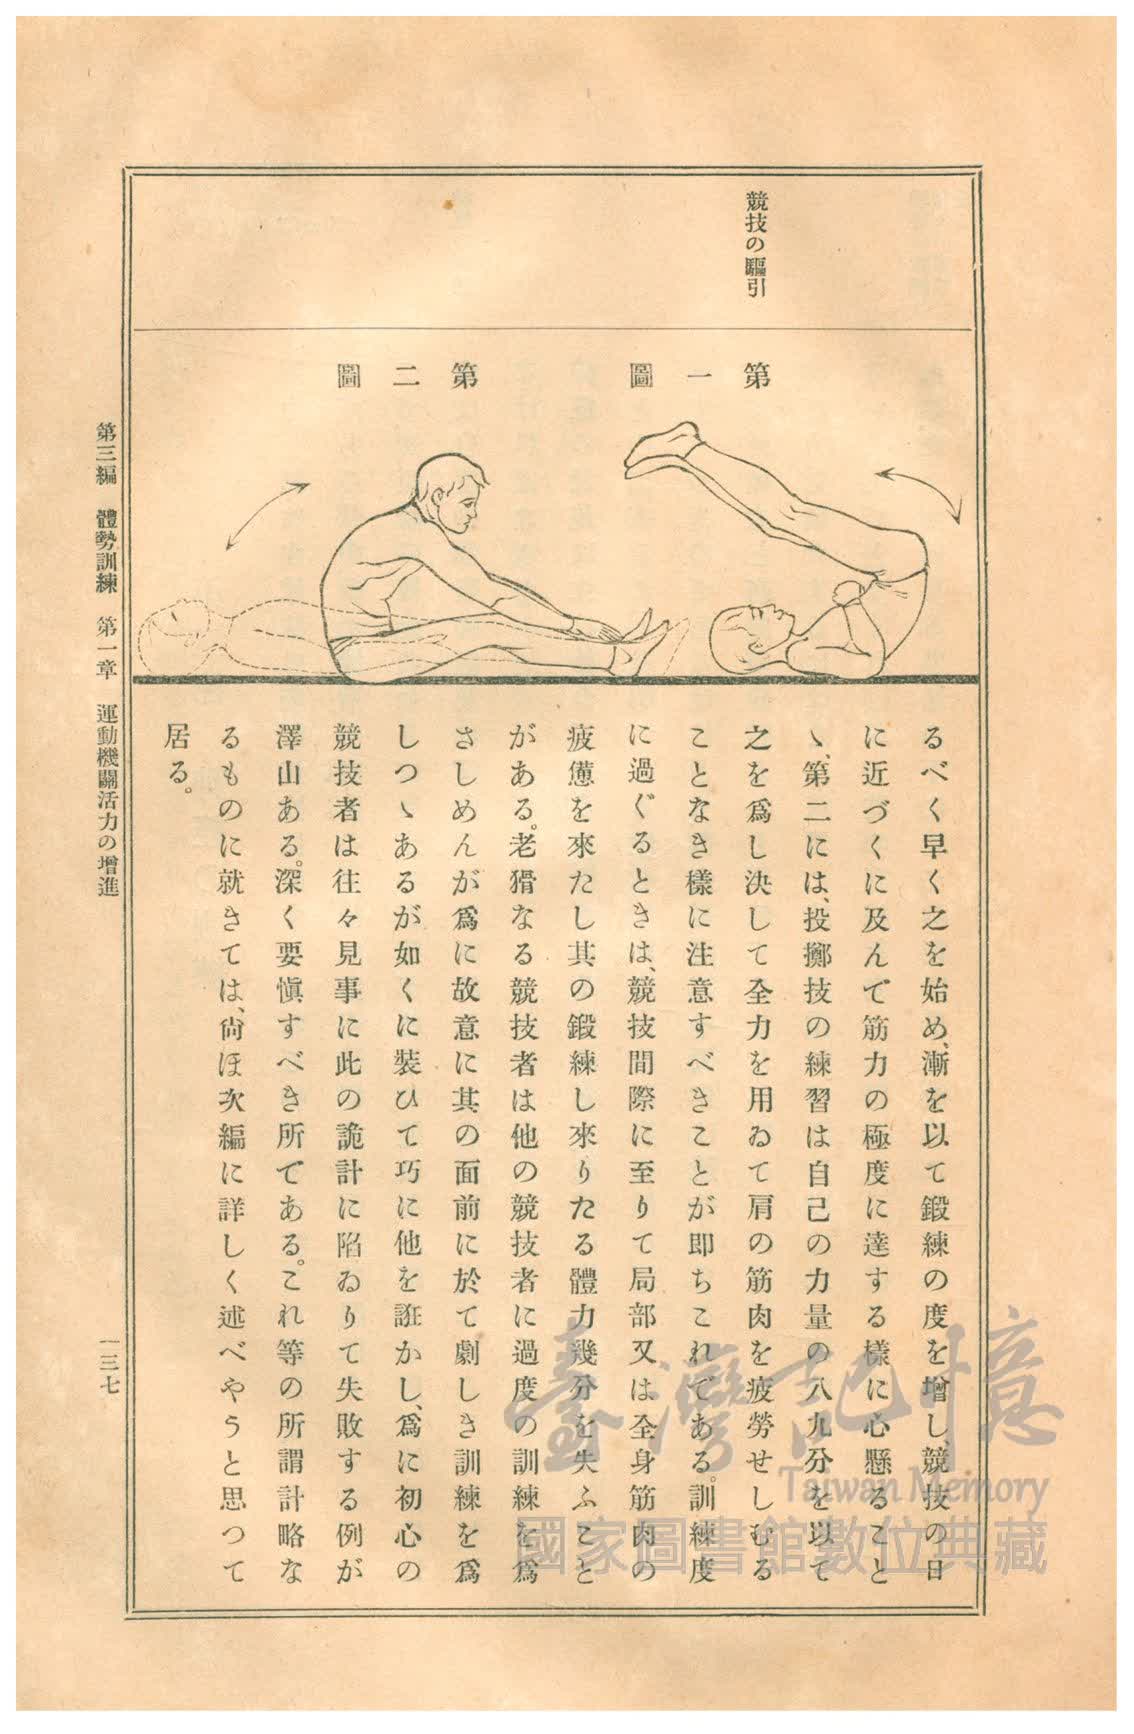 競技の驅引
第一圖
第二圖
るべく早く之を始め、漸を以て鍛練の度を增し、競技の日
に近づくに及んで筋力の極度に達する樣に心懸ること
ゝ、第二には、投擲技の練習は自己の力量の八九分を以て
之を爲し決して全力を用ゐて肩の筋肉を疲勞せしむる
ことなき樣に注意すべきことが卽ちこれである。訓練度
に過ぐるときは、競技間際に至りて局部又は全身筋肉の
疲憊を來たし其の鍛練し來りたる體力幾分を失ふこと
がある。老猾なる競技者は他の競技者に過度の訓練を爲
さしめんが爲に故意に其の面前に於て劇しき訓練を爲
しつゝあるが如くに裝ひて巧に他を誑かし、爲に初心の
競技者は往々見事に此の詭計に陷ゐりて失敗する例が
澤山ある。深く要愼すべき所である。これ等の所謂計略な
るものに就きては、尙ほ次編に詳しく述べやうと思つて
居る。
第三編 體勢訓練 第一章 運動機關活力の增進
一三七
臺灣記憶
Taiwan Memory
國家圖書館數位典藏